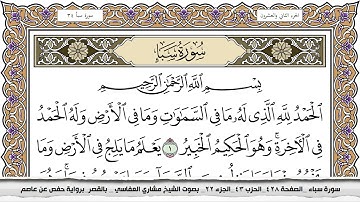 الجزء الثاني والعشرون
سورة سبأ ٣٤
سُورَةُ سَبَإٍ
بِسْمِ اللَّهِ الرَّحْمَٰنِ الرَّحِيمِ
الْحَمْدُ لِلَّهِ الَّذِي لَهُ مَا فِي السَّمَاوَاتِ وَمَا فِي الْأَرْضِ وَلَهُ الْحَمْدُ
فِي الْآخِرَةِ ۚ وَهُوَ الْحَكِيمُ الْخَبِيرُ ١ يَعْلَمُ مَا يَلِجُ فِي الْأَرْضِ وَمَا
سورة سباء .. الصفحة ٤٢٨ .. الحزب ٤٣ .. الجزء ٢٢ .. بصوت الشيخ مشاري العفاسي .. بالقصر .. برواية حفص عن عاصم